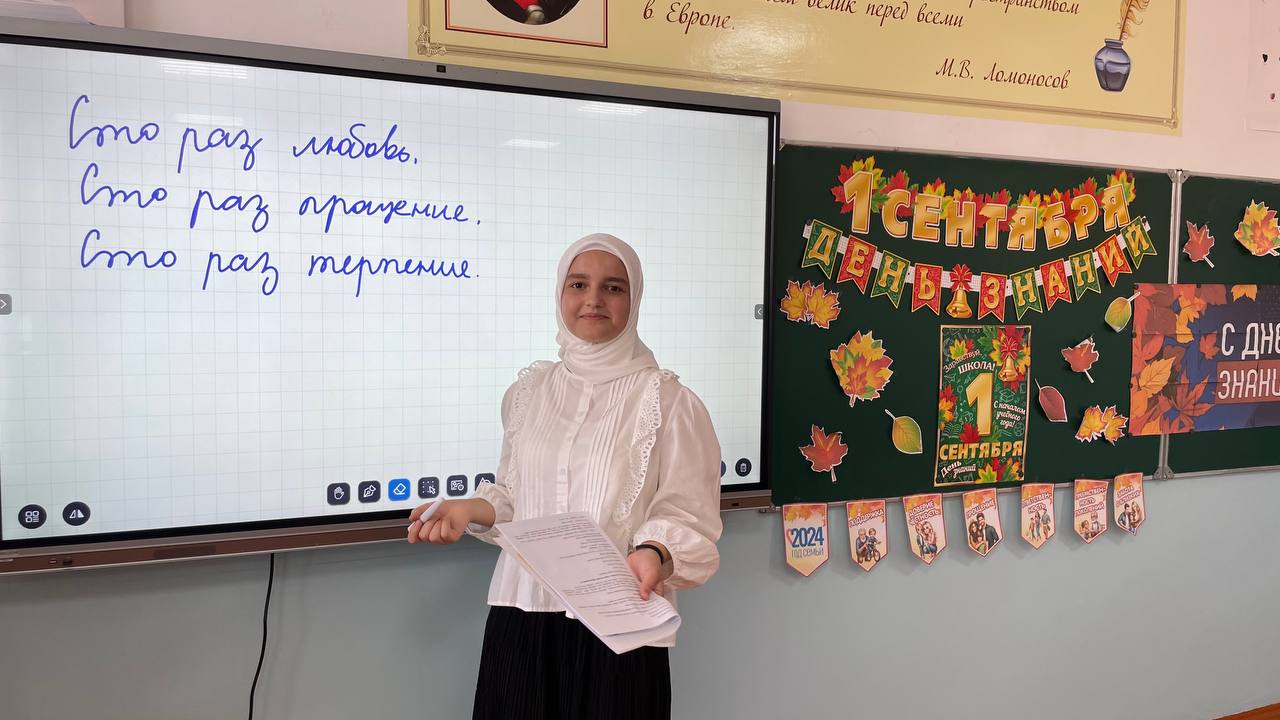 пространством
ем велик перед всеми
в Европе.
М.В. Ломоносов
Сто раз любовь.
Сто раз прощение.
Сто раз терпение.
1 СЕНТЯБРЯ
ДЕНЬ ЗНАНИЙ
Здравствуй
ШКОЛА!
1
С началом
учебного
года!
СЕНТЯБРЯ
День
знаний
С ДНЕ
ЗНАНИ
2024
ГОД СЕМЬИ
ПОДДЕРЖКА